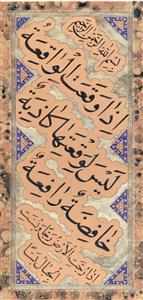 بسم الله الرحمن الرحيم
اذا وقعت الواقعة
ليس لوقعتها كاذبة
خافضة رافعة
اذا رجت الارض رجا وبست
الجبال بسا